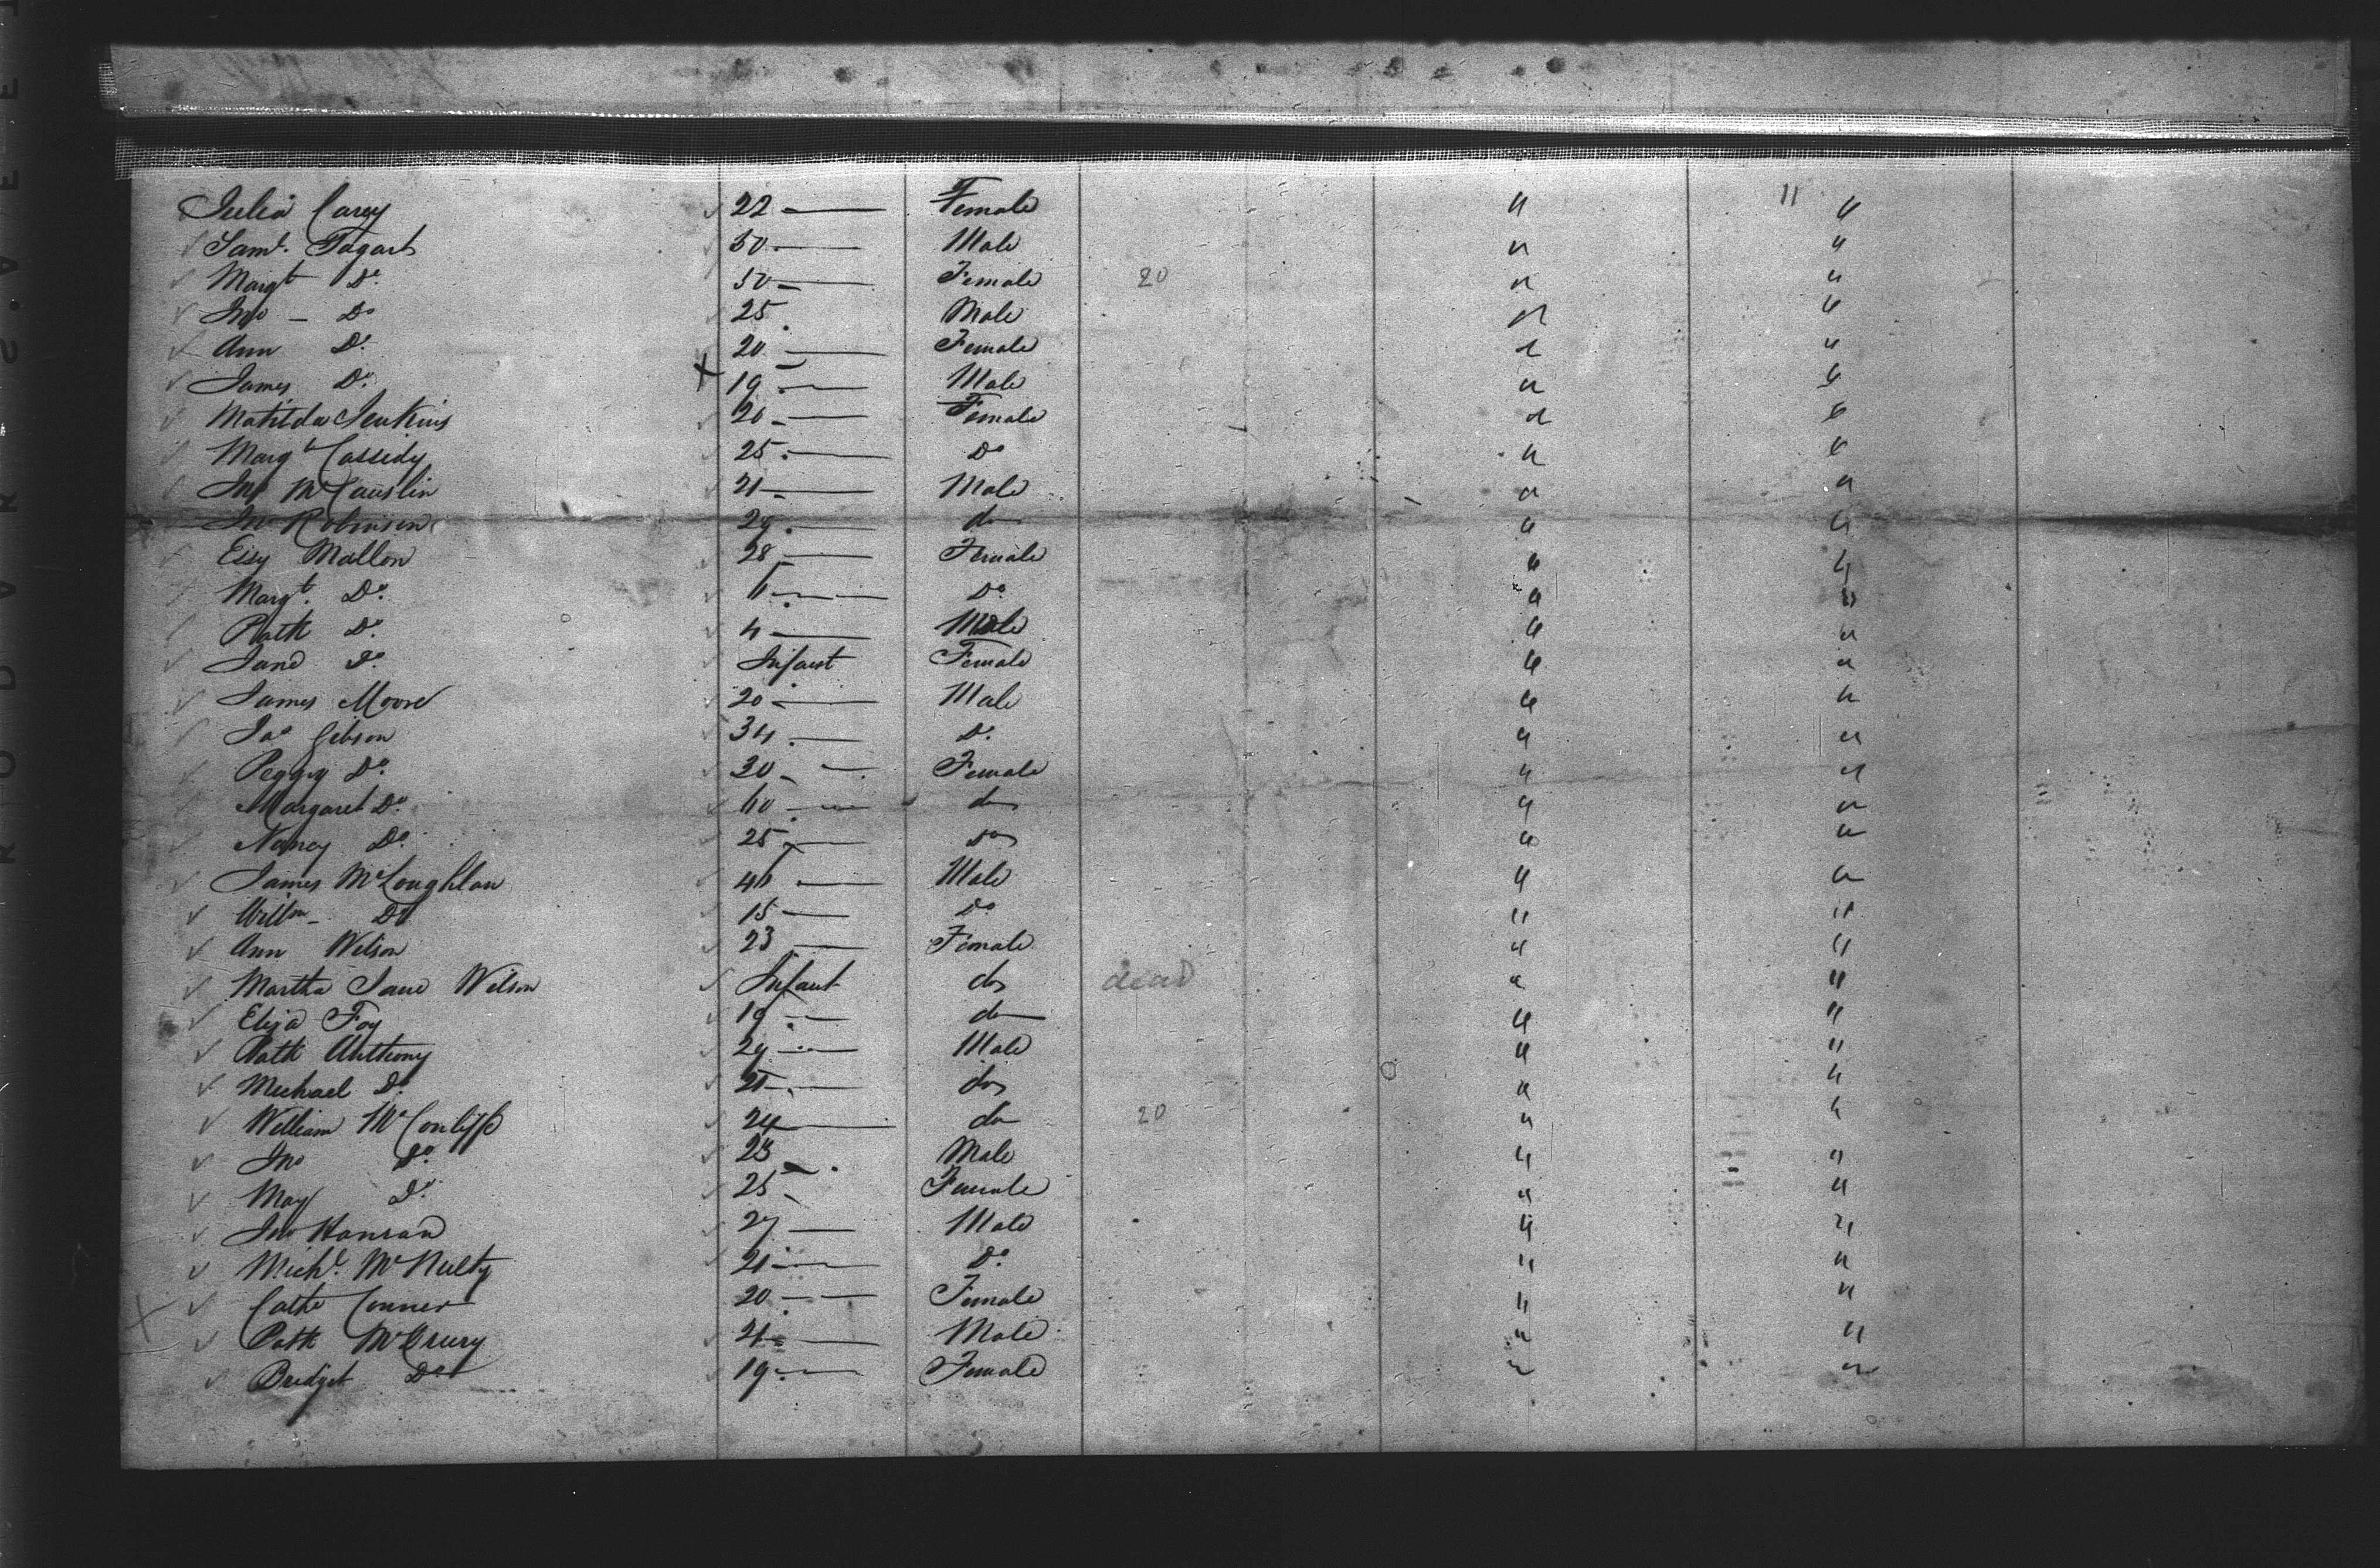 Julia Carey 22 — Female " 11 "
Saml. Tagart 50 — Male " "
Margt Do. 50 — Female 20 " "
Jno — Do 25 Male " "
Ann Do. 20 — Female " "
James Do. X 19 — Male " "
Matilda Jenkins 20 — Female " "
Margt Cassidy 25 — Do " "
Jno McCauslin 21 — Male " "
Jno Robinson 29 — do " "
Essy Mallon 28 — Female " "
Margt. Do. 6 — Do. " "
Patk Do. 4 — Male " "
Jane Do. Infant Female " "
James Moore 20 — Male " "
Jas Gibson 34 — Do. " "
Peggy Do. 30 — Female " "
Margaret Do. 60 — do " "
Nancy Do. 25 — Do " "
James McLoughlan 46 — Male " "
Willm — Do 15 — Do " "
Ann Wilson 23 — Female " "
Martha Jane Wilson Infant do dead " "
Eliza Foy 19 — do " "
Patk Anthony 29 — Male " "
Michael Do. 21 — do " "
William 24 — do 20 " "
Jno Do. 23 — Male " "
May Do. 25 — Female " "
Jno Hanran 27 — Male " "
Michl. McNulty 21 — Do. " "
X Cathe Conner 20 — Female " "
Patk McCrury 21 — Male " "
Bridget Do 19 — Female " "